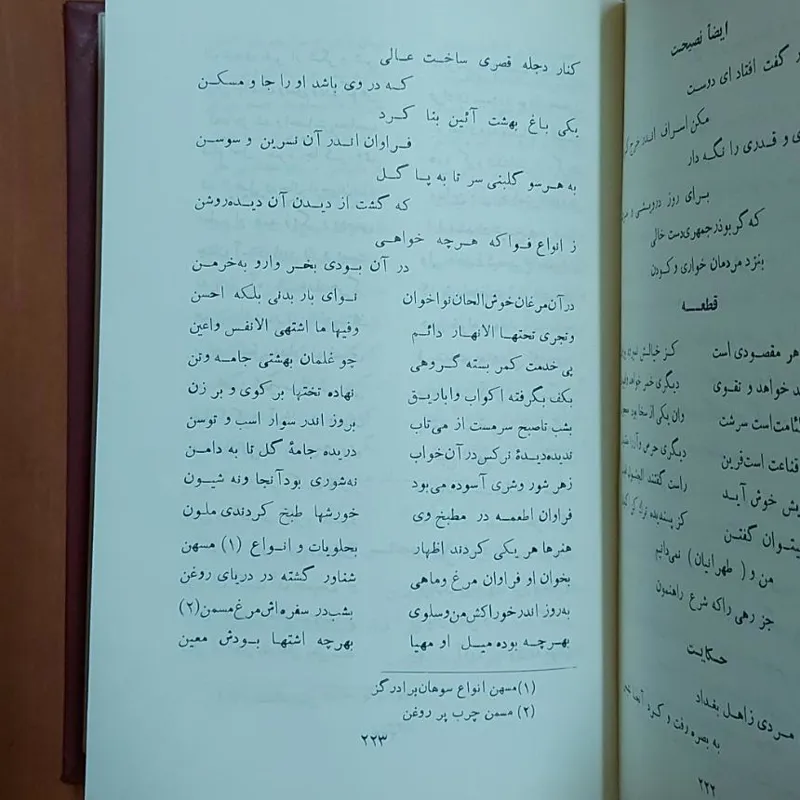 ایضاً نصیحت
گفت افتاد ای دوست
مکن اسراف اندر خرج
و قدری را نگه دار
برای روز درویشی و
که گر بوذرجمهری دست خالی
بنزد مردمان خواری و کودن
قطعه
هر مقصودی است کز خیالش
خواهد و تقوی دیگری خمر خواهد
است سرشت وان یکی از سخا بود
قناعت است فرین دیگری حرص و آز
خوش آید راست گفتند
میتوان گفتن کز پسندیده ترک
من و ( طهرانیان ) نمی‌دانیم
جز رهی را که شرع راهنمون
حکایت
مردی ز اهل بغداد
به بصره رفت و کرد آنجا
۲۲۲
کنار دجله قصری ساخت عالی
که در وی باشد او را جا و مسکن
یکی باغ بهشت آئین بنا کرد
فراوان اندر آن نسرین و سوسن
به هر سو گلبنی سر تا به پا گل
که گشت از دیدن آن دیده‌روشن
ز انواع فواکه هرچه خواهی
در آن بودی بخر وارو به‌خرمن
در آن مرغان خوش الحان نواخوان نوای بار بدنی بلکه احسن
وتجری تحتها الانهار دائم وفیها ما اشتهی الانفس واعین
پی خدمت کمر بسته گروهی چو غلمان بهشتی جامه وتن
بکف بگرفته اکواب واباریق نهاده تختها بر کوی و بر زن
بشب تاصبح سرمست از می‌ناب بروز اندر سوار اسب و توسن
ندیده‌دیدهٔ نرکس در آن خواب دریده جامهٔ گل تا به دامن
زهر شور وشری آسوده می‌بود نه‌شوری بود آنجا ونه شیون
فراوان اطعمه در مطبخ وی خورشها طبخ کردندی ملون
هنرها هر یکی کردند اظهار بحلویات و انواع (۱) مسهن
بخوان او فراوان مرغ وماهی شناور گشته در دریای روغن
به‌روز اندر خوراکش من‌وسلوی بشب‌در سفره‌اش‌مرغ مسمن(۲)
بهرچه بوده میل او مهیا بهرچه اشتها بودش معین
(۱)مسهن انواع سوهان‌برادر گز
(۲) مسمن چرب پر روغن
۲۲۳